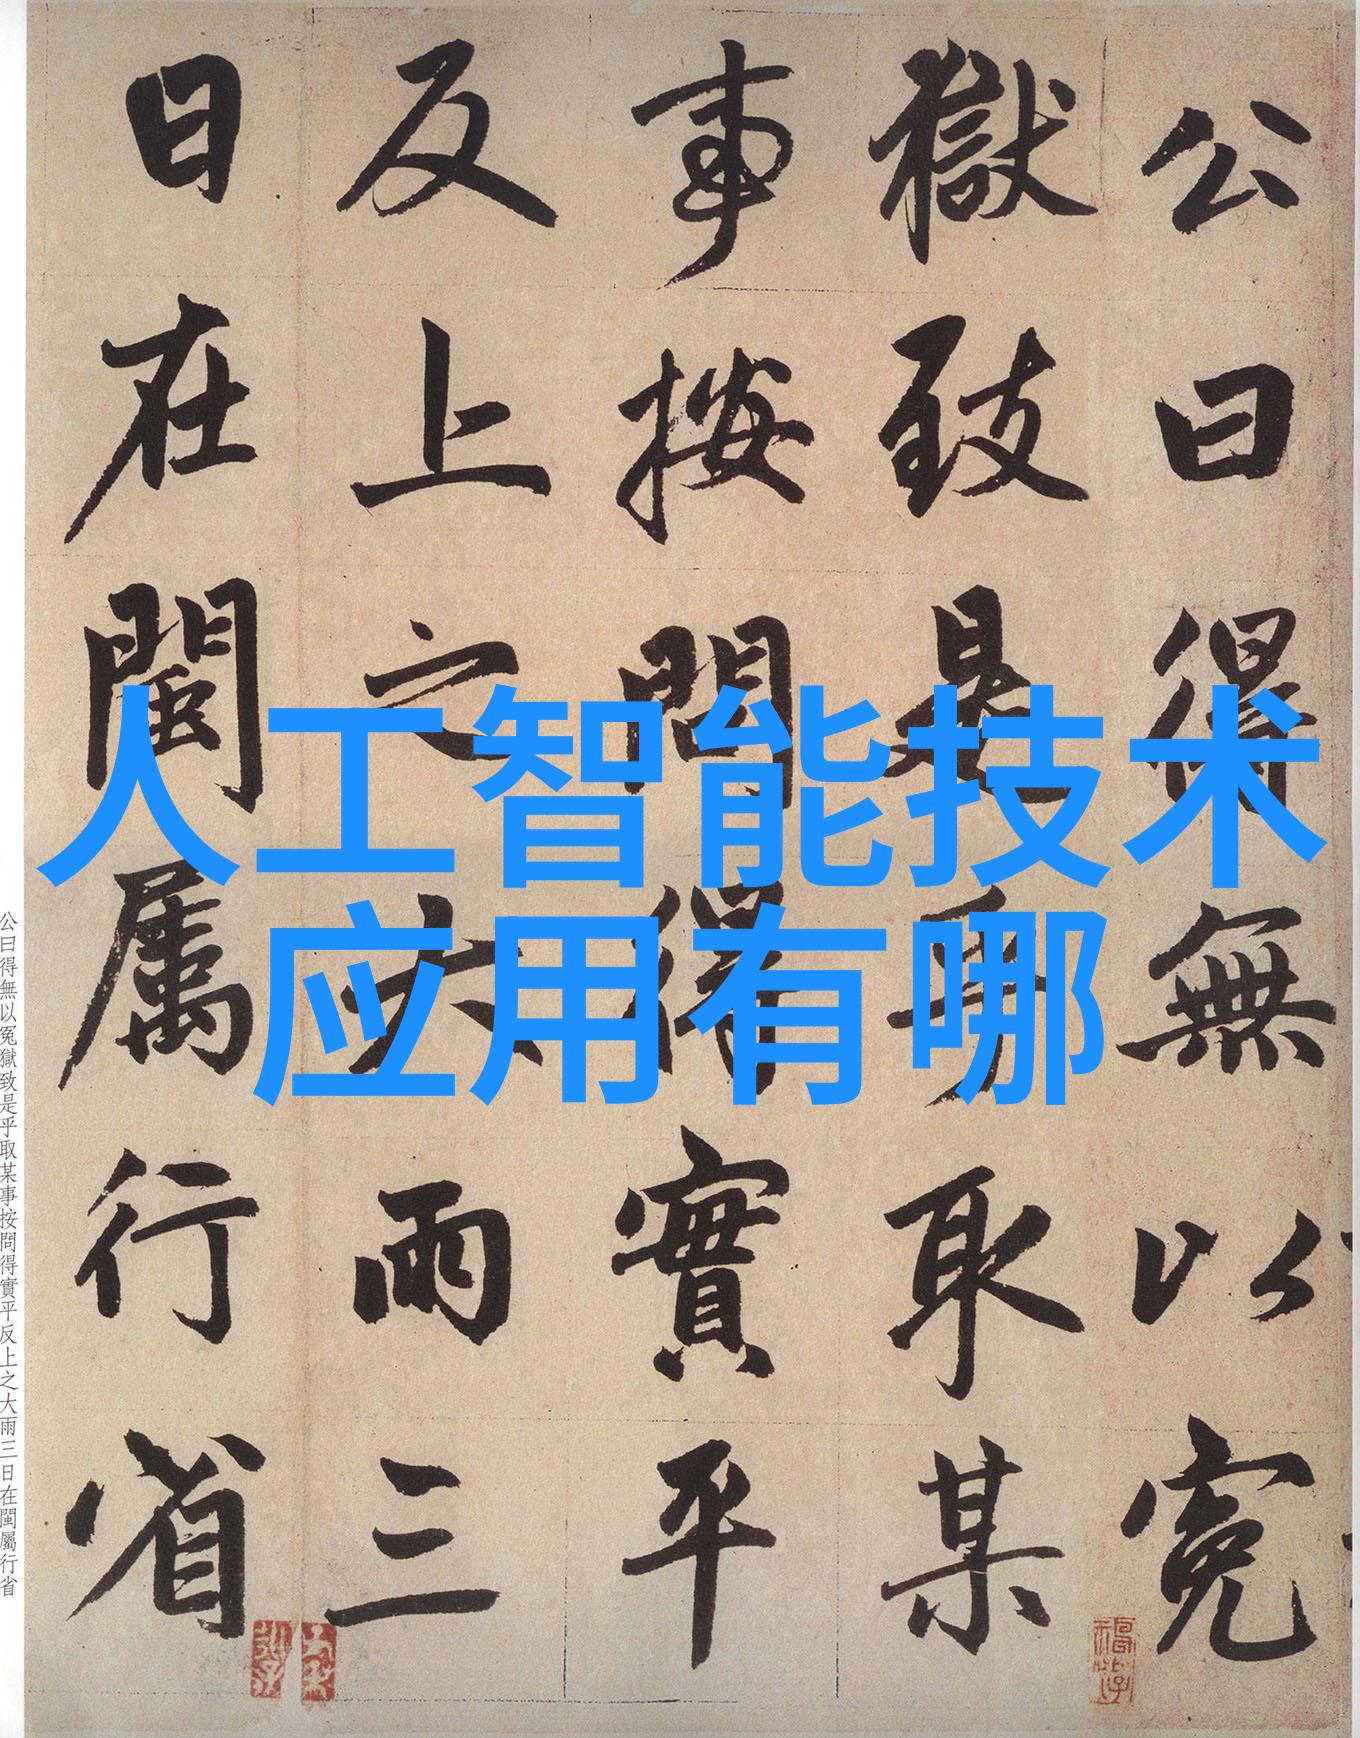 公曰得無以冤
獄致是乎取某
事按問得實平
反上之大雨三
日在閩屬行省
人工智能技术
应用有哪
公曰得無以冤獄致是乎取某事按問得實平反上之大雨三日在閩屬行省